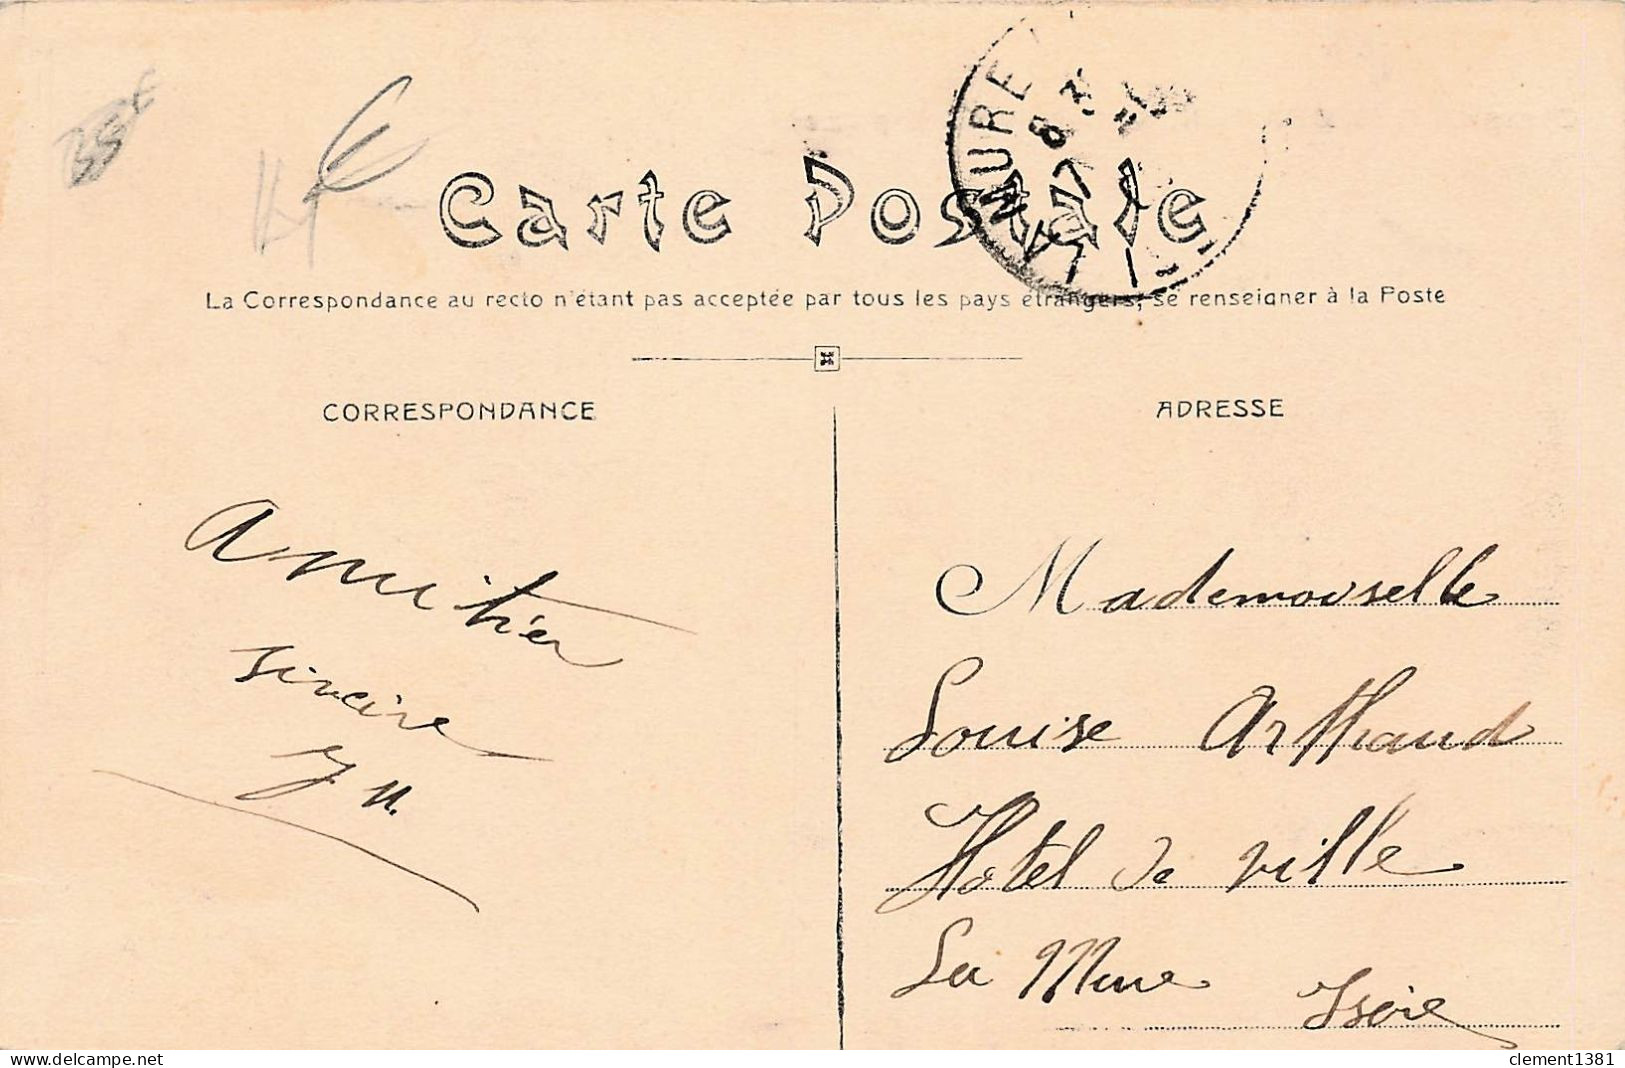 35€
Carte Postale
LA MURE
La Correspondance au recto n'étant pas acceptée par tous les pays étrangers, se renseigner à la Poste
CORRESPONDANCE
ADRESSE
Amitier
sincère
Mademoiselle
Louise Arthaud
Hotel de ville
La Mure Isère
clement1381